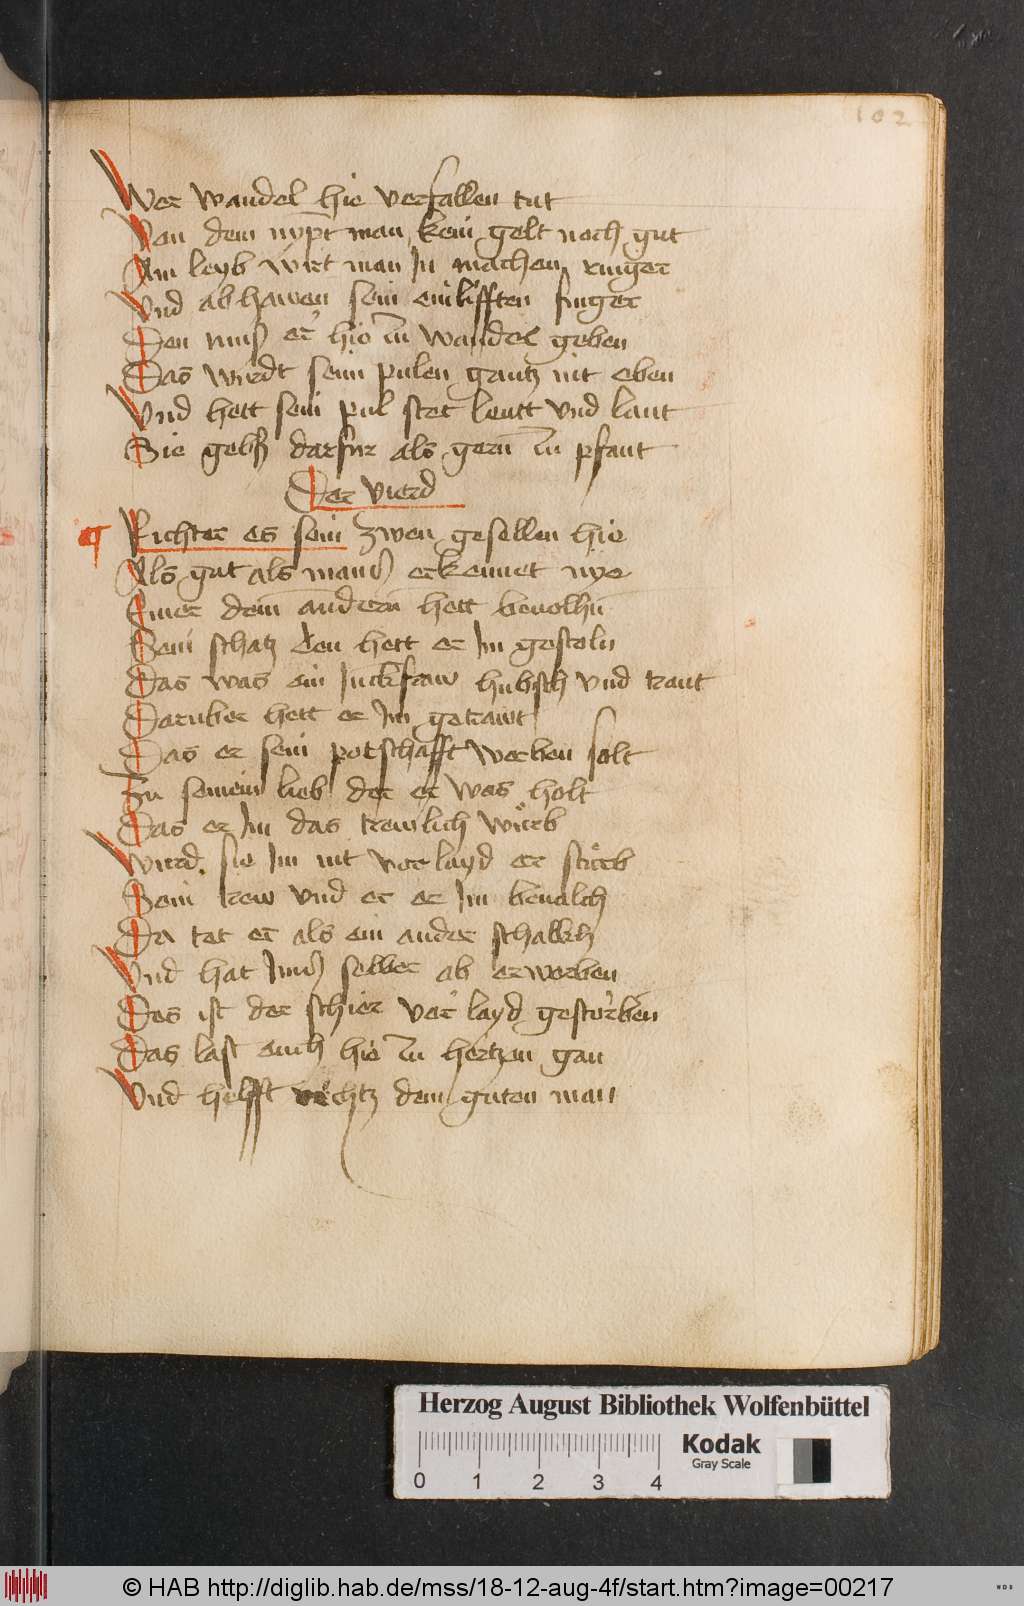 102
Wer wandel hie verfallen tut
Von dem nypt man kein gelt noch gut
Am leyb wirt man Jn machen ringer
Vnd abhawen sein einlifften finger
Den mus er hie zu wandel geben
Das wirdt seim pulen gantz nit eben
Vnd hett sein pul stet leutt vnd lant
Sie geb darfur als gern zu pfant
Der vierd
Richter es sein zwen gesellen hie
Als gut als mans erkennet nye
Einer dem andern hett beuolhn
Sein schatz den hett er Jm gestoln
Das was ein Junckfraw hubsch vnd traut
Daruber hett er Jm getrawt
Das er sein potschafft werben solt
Zu seinem lieb der er was holt
Das er Jm das trewlich würb
Wurd sie Jm nit vor layd er stürb
Sein trew vnd er er Jm beualch
Da tet er als ein ander schalkh
Vnd hat Jms selber ab erworben
Des ist der schier vor layd gestorben
Das last euch hie zu hertzen gan
Vnd helfft rechtz dem guten man
Herzog August Bibliothek Wolfenbüttel
Kodak
Gray Scale
0 1 2 3 4
© HAB http://diglib.hab.de/mss/18-12-aug-4f/start.htm?image=00217